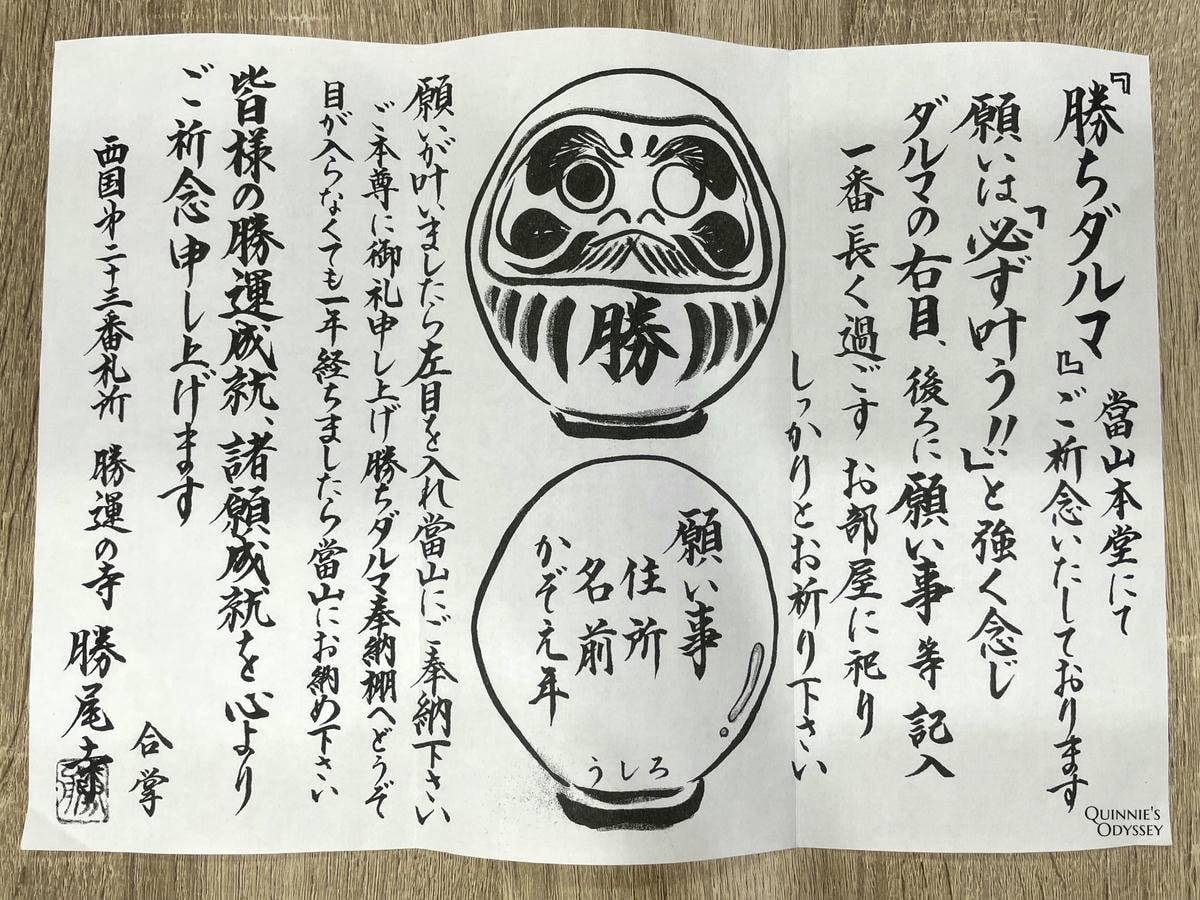 『勝ちダルマ』
當山本堂にて
ご祈念いたしております
願いは「必ず叶う!!」と強く念じ
ダルマの右目、後ろに願い事等記入
一番長く過ごすお部屋に祀り
しっかりとお祈り下さい
勝
願い事
住所
名前
かぞえ年
うしろ
願いが叶いましたら左目を入れ當山にご奉納下さい
ご本尊に御礼申し上げ勝ちダルマ奉納棚へどうぞ
目が入らなくても一年経ちましたら當山にお納め下さい
皆様の勝運成就、諸願成就を心より
ご祈念申し上げます
合掌
西国第二十三番札所 勝運の寺 勝尾寺
QUINNIE'S
ODYSSEY